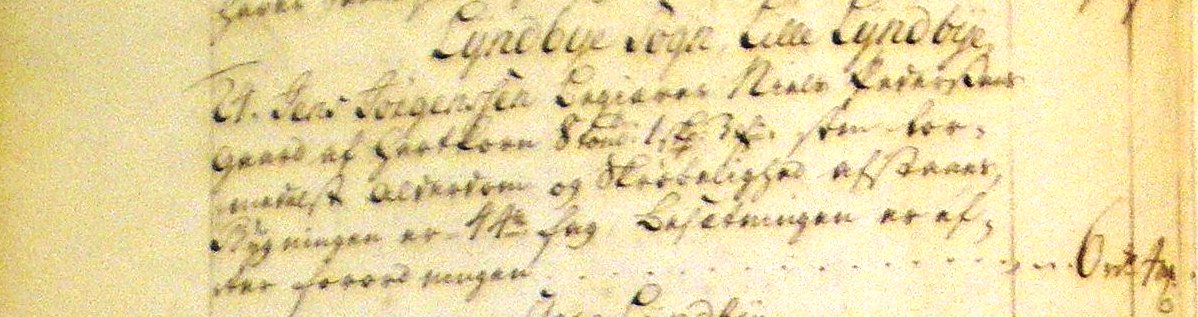 Lyndbye Sogn, Lille Lyndbye
21. Jens Jörgensen begierer Niels Pedersens
gaard af Hartkorn 8 tönd. 1 skp. 3 fk. som for-
medelst alderdom og Skröbelighed afstaaer,
Bygningen er 44 fag, Besætningen er ef-
ter forordningen
6 rdr.
Lyndbye